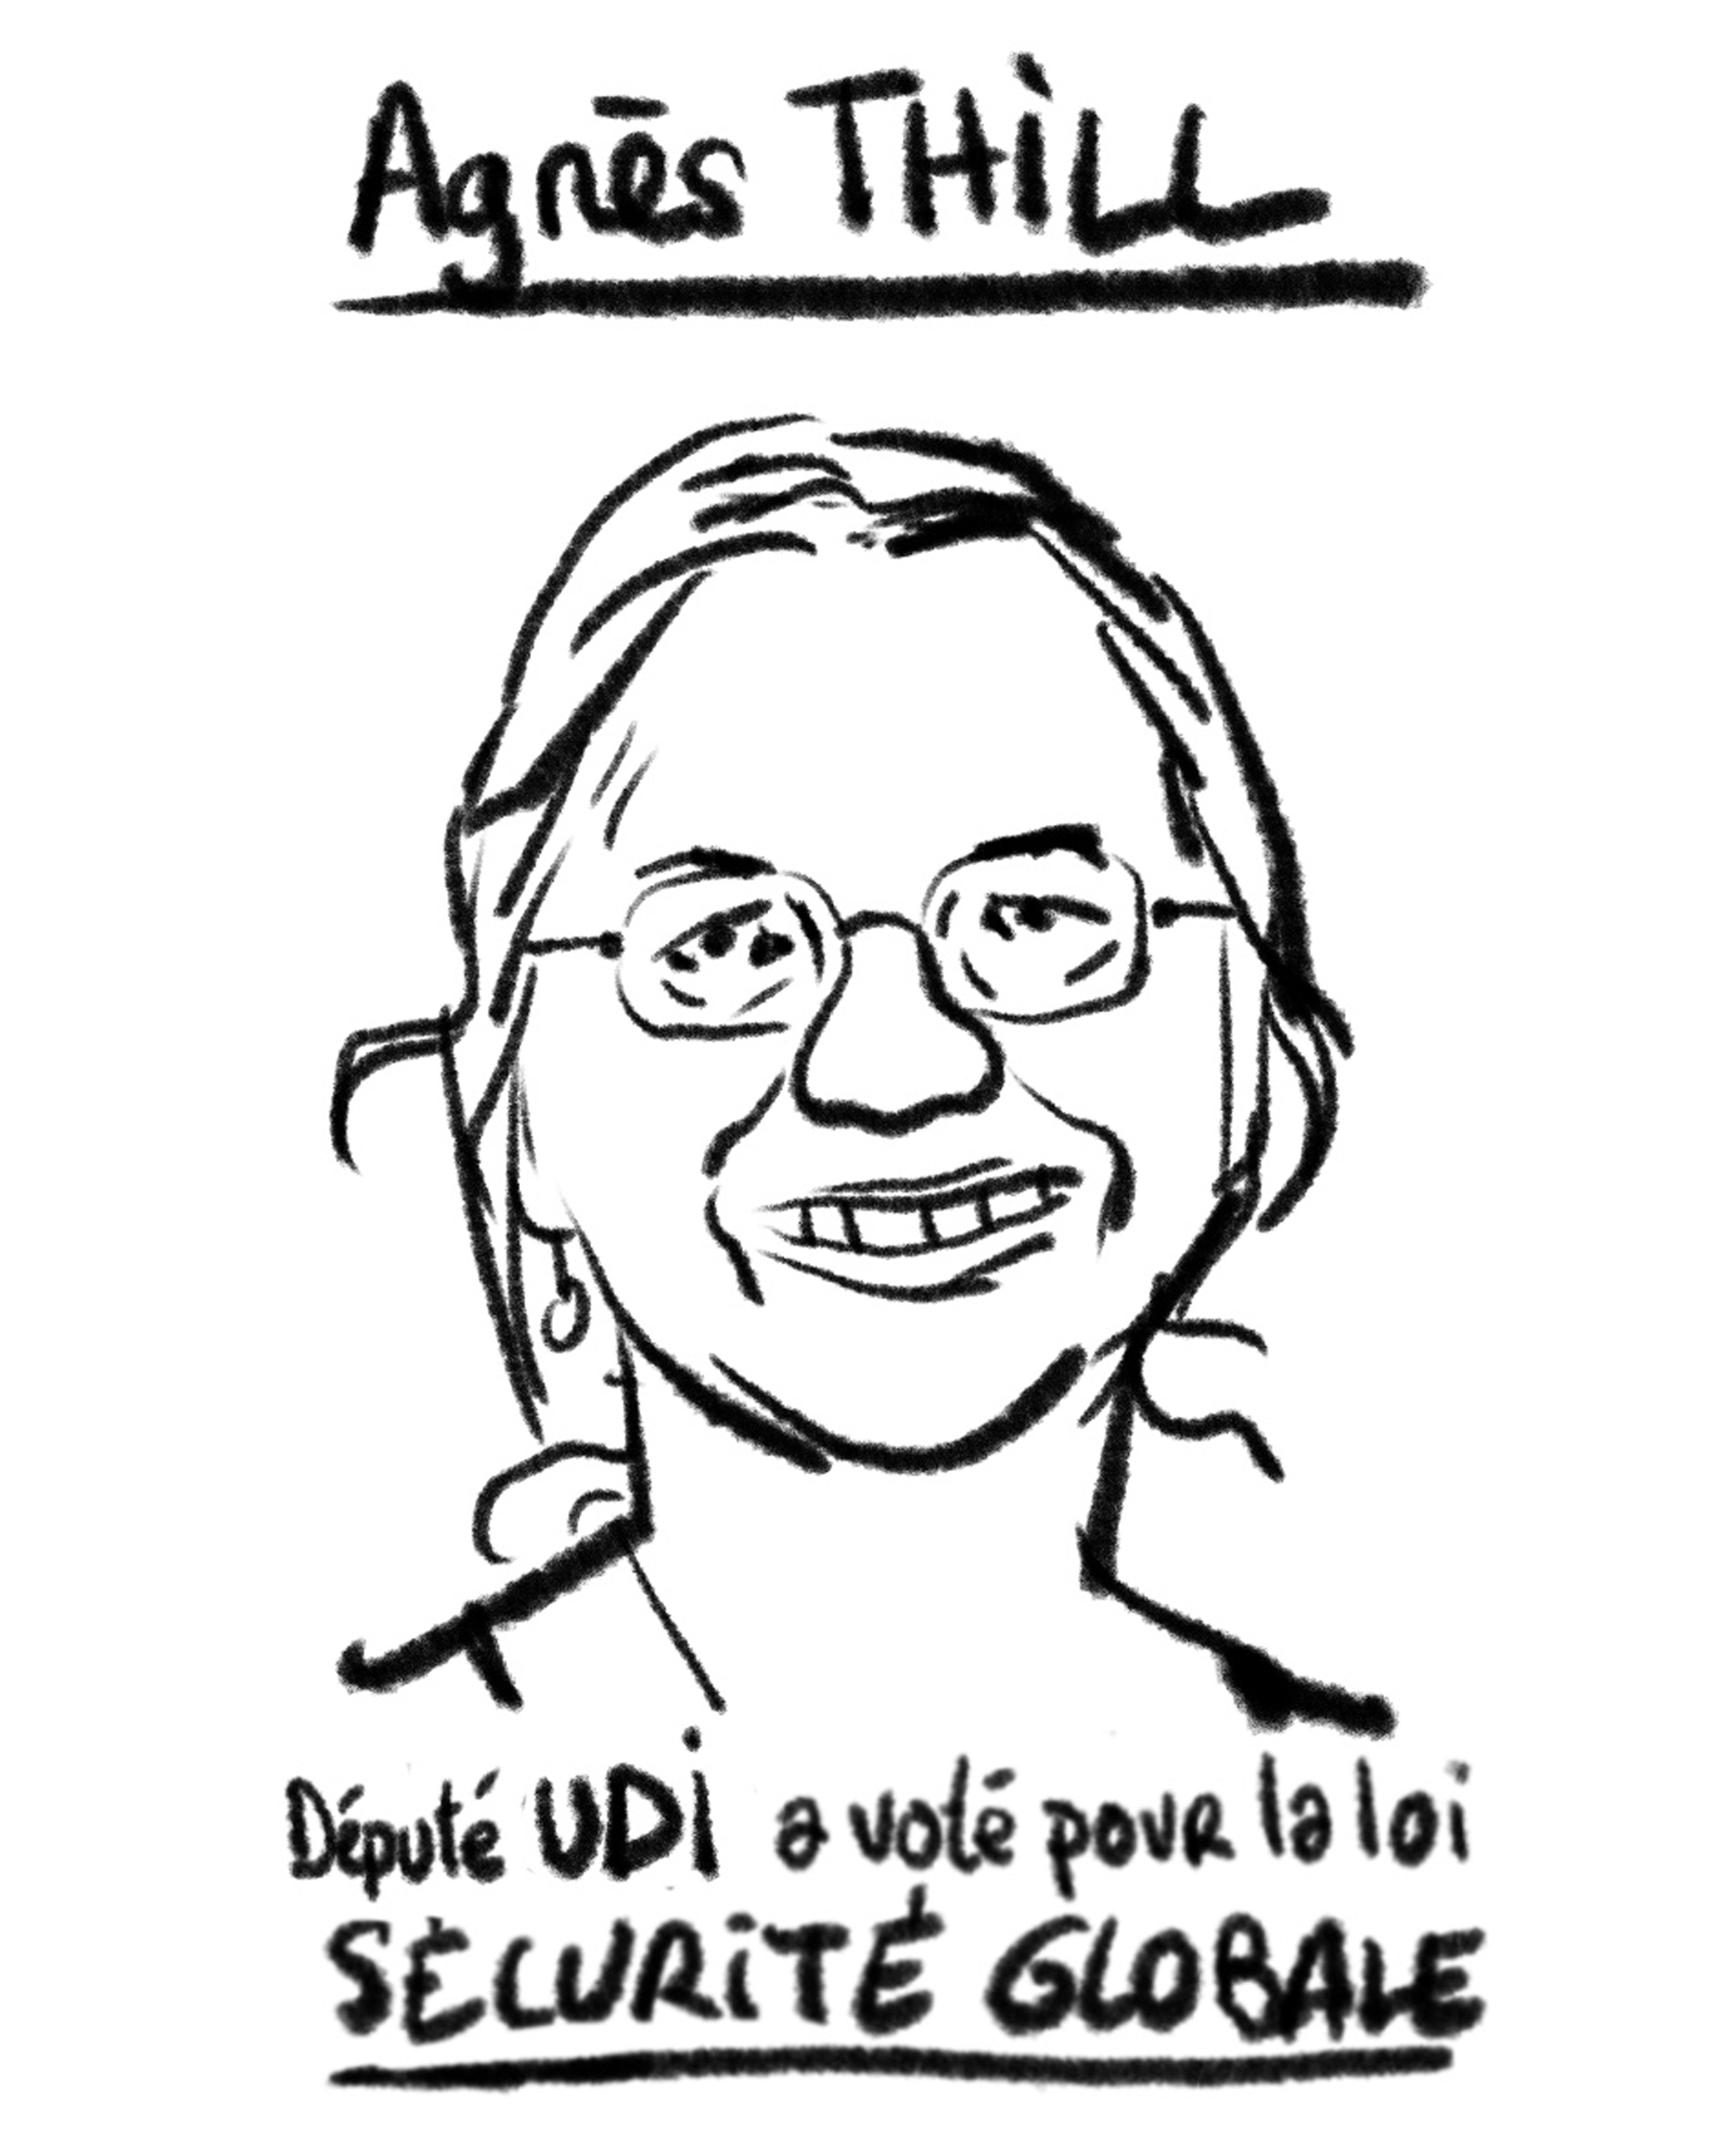 Agnès THiLL
Député UDi a voté pour la loi
SÉCURiTÉ GLOBALE